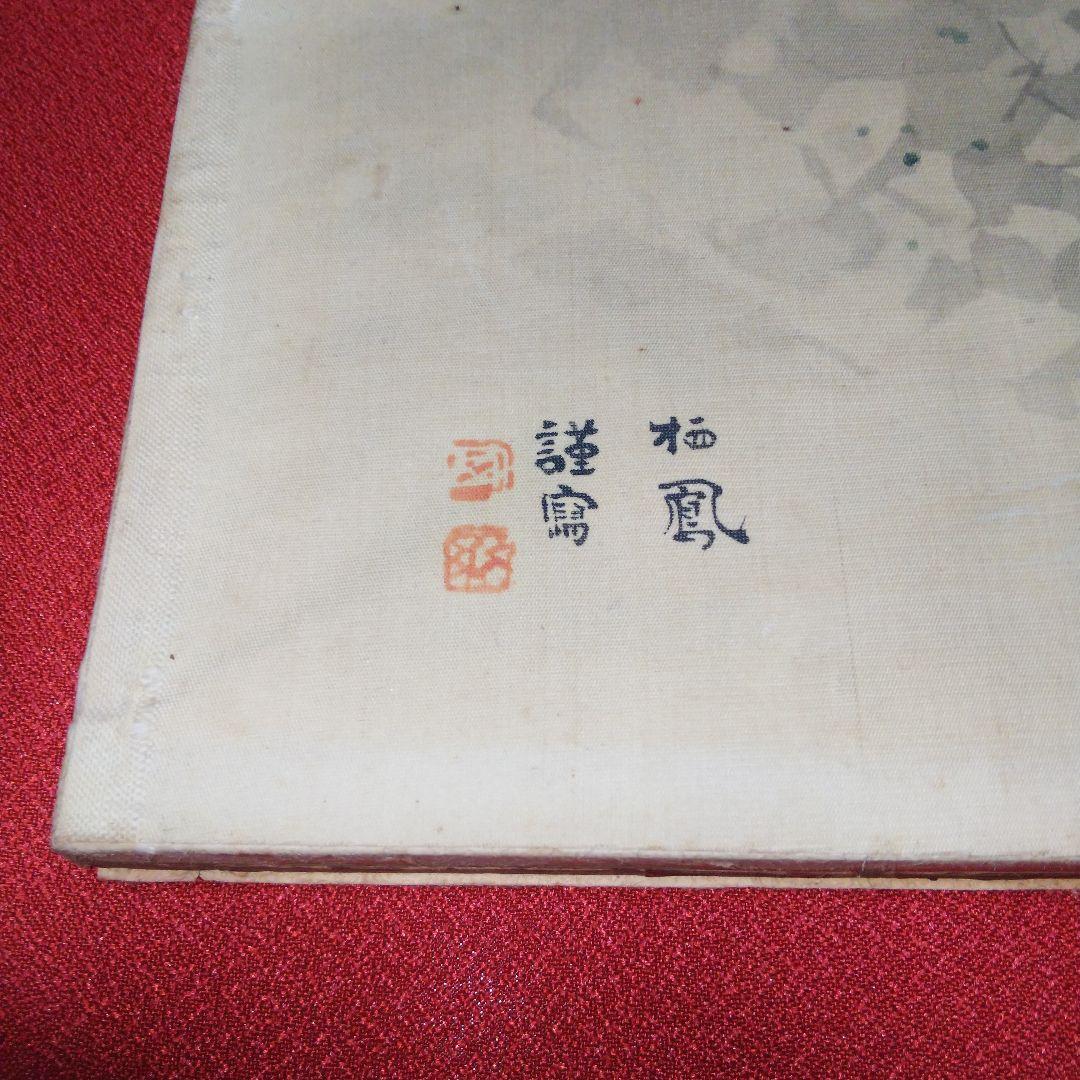 栖鳳
謹寫